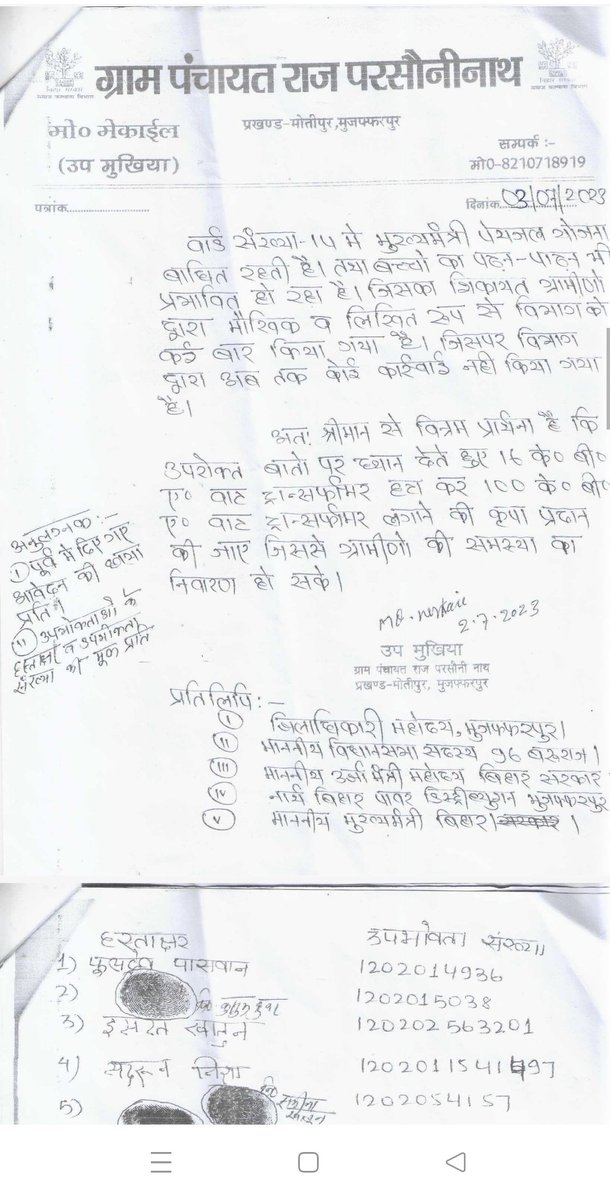 ग्राम पंचायत राज परसौनीनाथ
मो० मेकाईल
(उप मुखिया)
प्रखण्ड-मोतीपुर,मुजफ्फरपुर
सम्पर्क :-
मो0-8210718919
पत्रांक
दिनांक 03/07/2023
वार्ड संख्या-14 मे मुख्यमंत्री पेयजल योजना
बाधित रहती है। तथा बच्चो का पठन-पाठन भी
प्रभावित हो रहा है। जिसका शिकायत ग्रामीणो
द्वारा मौखिक व लिखित रूप से विभाग को
कई बार किया गया है। जिसपर विभाग
द्वारा अब तक कोई कार्रवाई नही किया गया
है।
अतः श्रीमान से विनम्र प्रार्थना है कि
उपरोक्त बातो पर ध्यान देते हुए 16 के० बी०
ए० वाट ट्रान्सफॉर्मर हटा कर 100 के० बी०
ए० वाट ट्रान्सफॉर्मर लगाने की कृपा प्रदान
की जाए जिससे ग्रामीणो की समस्या का
निवारण हो सके।
अनुलग्नक:-
(i) पूर्व मे दिए गए
आवेदन की छाया
प्रति।
(ii) उपभोक्ताओ के
हस्ताक्षर व उपभोक्ता
संख्या की मूल प्रति
2.7.2023
उप मुखिया
ग्राम पंचायत राज परसौनी नाथ
प्रखण्ड-मोतीपुर, मुजफ्फरपुर
प्रतिलिपि:-
(I) जिलाधिकारी महोदय, मुजफ्फरपुर।
(II) माननीय विधानसभा सदस्य 96 बरूराज।
(III) माननीय उर्जा मंत्री महोदय बिहार सरकार
(IV) नार्थ बिहार पावर डिस्ट्रीब्युशन मुजफ्फरपुर
(V) माननीय मुख्यमंत्री बिहार।
हस्ताक्षर उपभोक्ता संख्या
1) फुलदेव पासवान 1202014936
2) 1202015038
3) इसरत खातुन 120202563201
4) 1202011541497
5) 1202054157